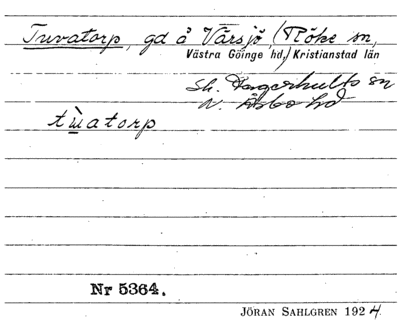 Tuvatorp, gd å Vårsjö, (Röke sn,
Västra Göinge hd,) Kristianstad län
Sk. Fagerhults sn
N. Åsbo hd
tùatorp
Nr 5364.
JÖRAN SAHLGREN 1924